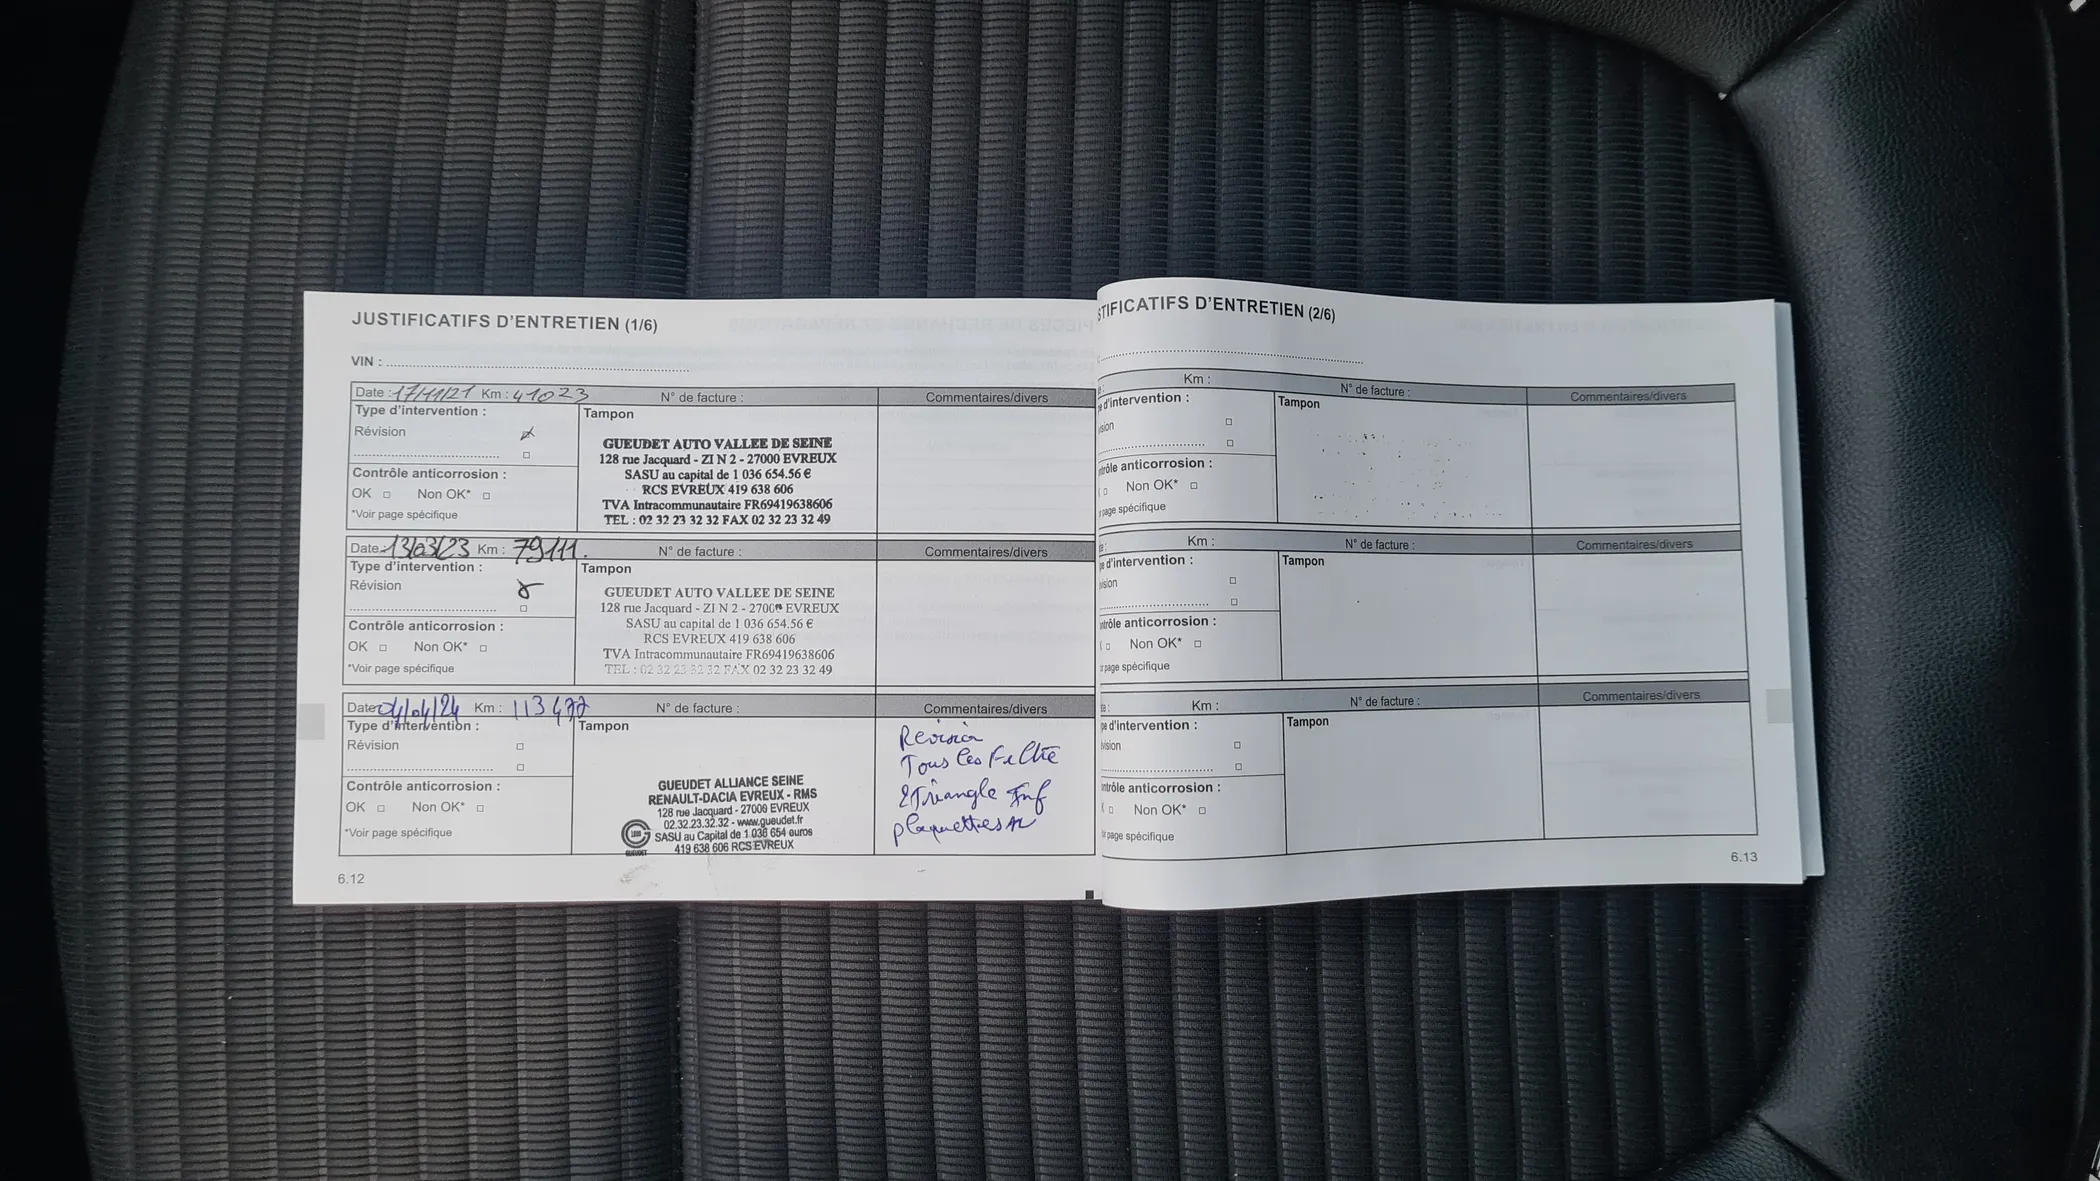 JUSTIFICATIFS D'ENTRETIEN (1/6)
VIN :
Date : 17/11/21 Km : 41023 N° de facture : Commentaires/divers
Type d'intervention : Tampon
Révision
GUEUDET AUTO VALLEE DE SEINE
128 rue Jacquard - ZI N 2 - 27000 EVREUX
SASU au capital de 1 036 654.56 €
RCS EVREUX 419 638 606
TVA Intracommunautaire FR69419638606
TEL : 02 32 23 32 32 FAX 02 32 23 32 49
Contrôle anticorrosion :
OK Non OK*
*Voir page spécifique
Date 13/03/23 Km : 79111. N° de facture : Commentaires/divers
Type d'intervention : Tampon
Révision
GUEUDET AUTO VALLEE DE SEINE
128 rue Jacquard - ZI N 2 - 27000 EVREUX
SASU au capital de 1 036 654.56 €
RCS EVREUX 419 638 606
TVA Intracommunautaire FR69419638606
TEL : 02 32 23 32 32 FAX 02 32 23 32 49
Contrôle anticorrosion :
OK Non OK*
*Voir page spécifique
Date 04/04/24 Km : 113477 N° de facture : Commentaires/divers
Type d'intervention : Tampon
Révision
GUEUDET ALLIANCE SEINE
RENAULT-DACIA EVREUX - RMS
128 rue Jacquard - 27000 EVREUX
02.32.23.32.32 - www.gueudet.fr
SASU au Capital de 1 036 654 euros
419 638 606 RCS EVREUX
GUEUDET
Révision
Tous les Filtre
2 Triangle Inf
plaquettes AR
Contrôle anticorrosion :
OK Non OK*
*Voir page spécifique
6.12
STIFICATIFS D'ENTRETIEN (2/6)
Km : N° de facture : Commentaires/divers
e d'intervention : Tampon
vision
ntrôle anticorrosion :
Non OK*
r page spécifique
Km : N° de facture : Commentaires/divers
e d'intervention : Tampon
vision
ntrôle anticorrosion :
Non OK*
r page spécifique
Km : N° de facture : Commentaires/divers
e d'intervention : Tampon
vision
ntrôle anticorrosion :
Non OK*
r page spécifique
6.13